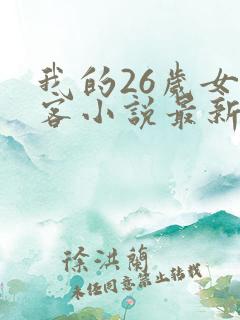 我的26岁女
客小说最新
徐洪兰
未经同意禁止转载